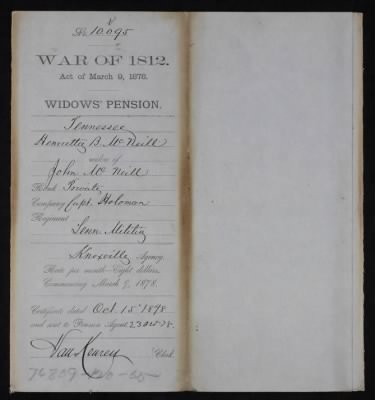 No. 10.095
WAR OF 1812.
Act of March 9, 1878.
WIDOWS' PENSION.
Tennessee
Henrietta B. McNeill
widow of
John McNeill
Rank Private
Company Capt. Holoman
Regiment
Tenn Militia
Knoxville Agency
Rate per month—Eight dollars.
Commencing March 9, 1878.
Certificate dated Oct. 15" 1878
and sent to Pension Agent 23 Oct 78.
Clerk.